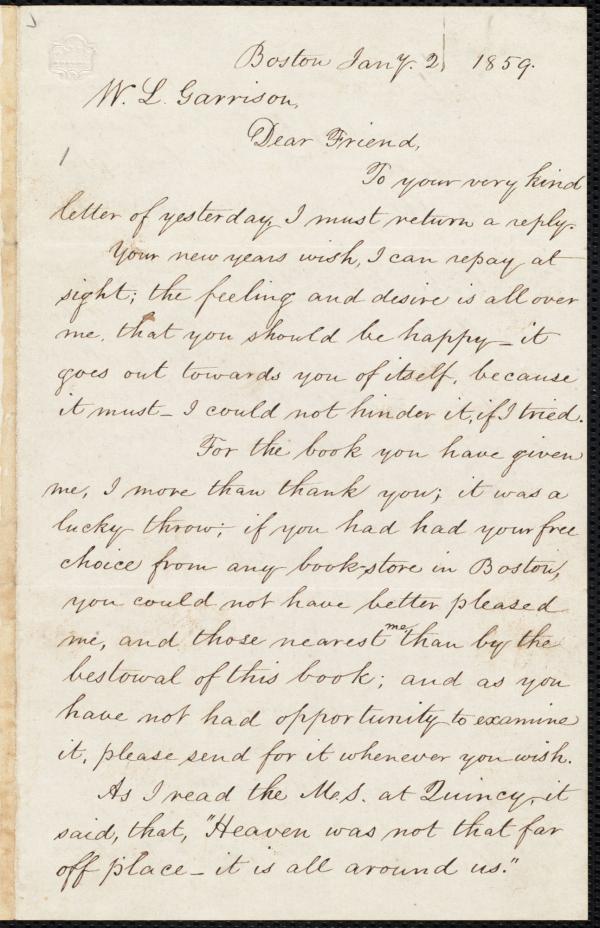 Boston Jany. 2, 1859.
W. L. Garrison,
Dear Friend,
1
To your very kind
letter of yesterday, I must return a reply.
Your new years wish, I can repay at
sight; the feeling and desire is all over
me, that you should be happy – it
goes out towards you of itself, because
it must – I could not hinder it, if I tried.
For the book you have given
me, I more than thank you; it was a
lucky throw; if you had had your free
choice from any book-store in Boston,
you could not have better pleased
me, and those nearest me than by the
bestowal of this book; and as you
have not had opportunity to examine
it, please send for it whenever you wish.
As I read the M.S. at Quincy, it
said, that, "Heaven was not that far
off place – it is all around us."